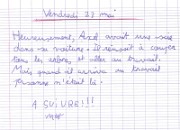 Vendredi 23 mai
Heureusement, Axel avait une scie
dans sa voiture. il réussit à couper
tous les arbres, et aller au travail.
Mais quand il arriva au travail
personne n'était là.
A SUIVRE!!!